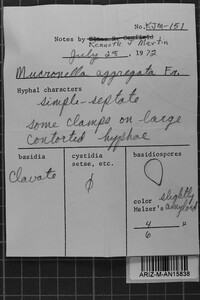 No. KJM-151
Notes by Elmer R. Canfield
Kenneth J Martin
July 28, 1972
Mucronella aggregata Fr.
Hyphal characters
simple-septate
some clamps on large
contorted hyphae
basidia
cystidia
setae, etc.
basidiospores
Clavate
φ
color slightly
Melzer's amyloid
4 μ
6
ARIZ-M-AN15838